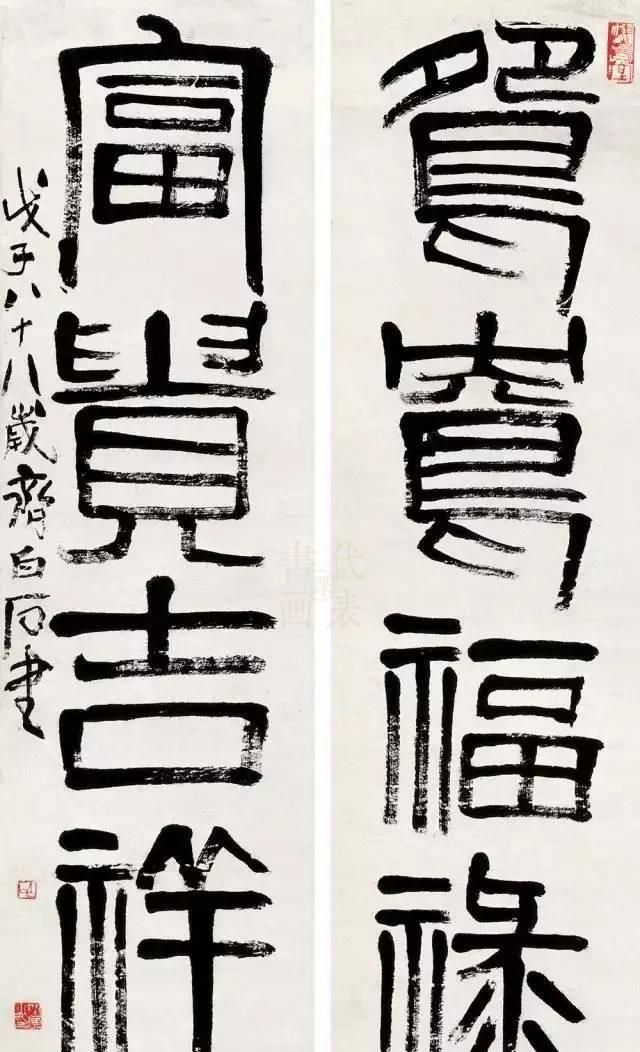 鴛鴦福祿
富貴吉祥
戊子八十八歲齊白石書
代表
書画